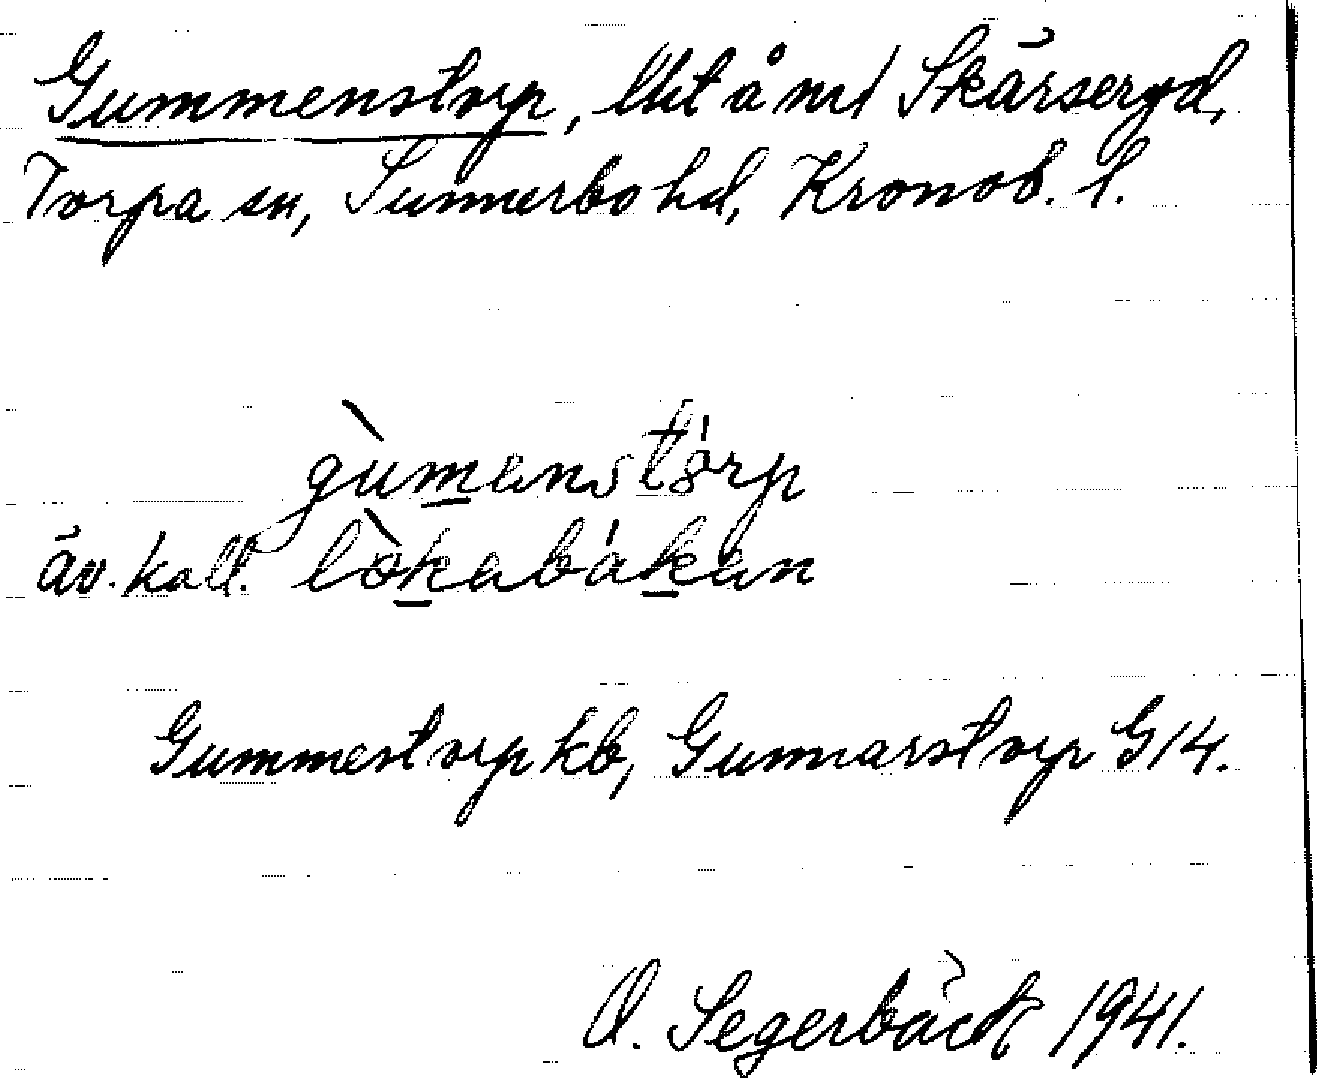 Gummenstorp, lht å nr 1 Skärseryd,
Torpa sn, Sunnerbo hd, Kronob. l.
gùmenstórp
äv. kall. lòkabákan
Gummestorp kb, Gunnarstorp G14.
O. Segerbäck 1941.